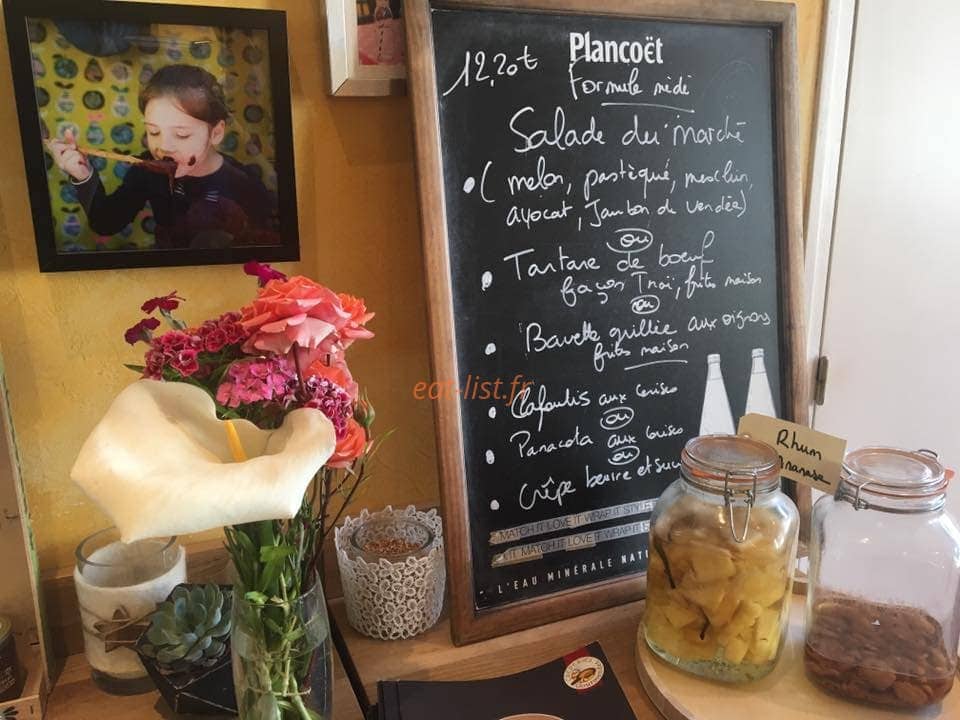 Plancoët
12,20€
Formule midi
Salade du marché
( melon, pastèque, mesclun,
avocat, Jambon de vendée)
ou
Tartare de boeuf
façon Thaï, frites maison
ou
Bavette grillée aux oignons
frites maison
Clafoutis aux cerises
ou
Panacota aux cerises
ou
Crêpe beurre et sucre
MATCH IT LOVE IT WRAP IT STYLE
IT MATCH IT LOVE IT WRAP IT
L'EAU MINÉRALE NAT
Rhum
Ananas
eat-list.fr